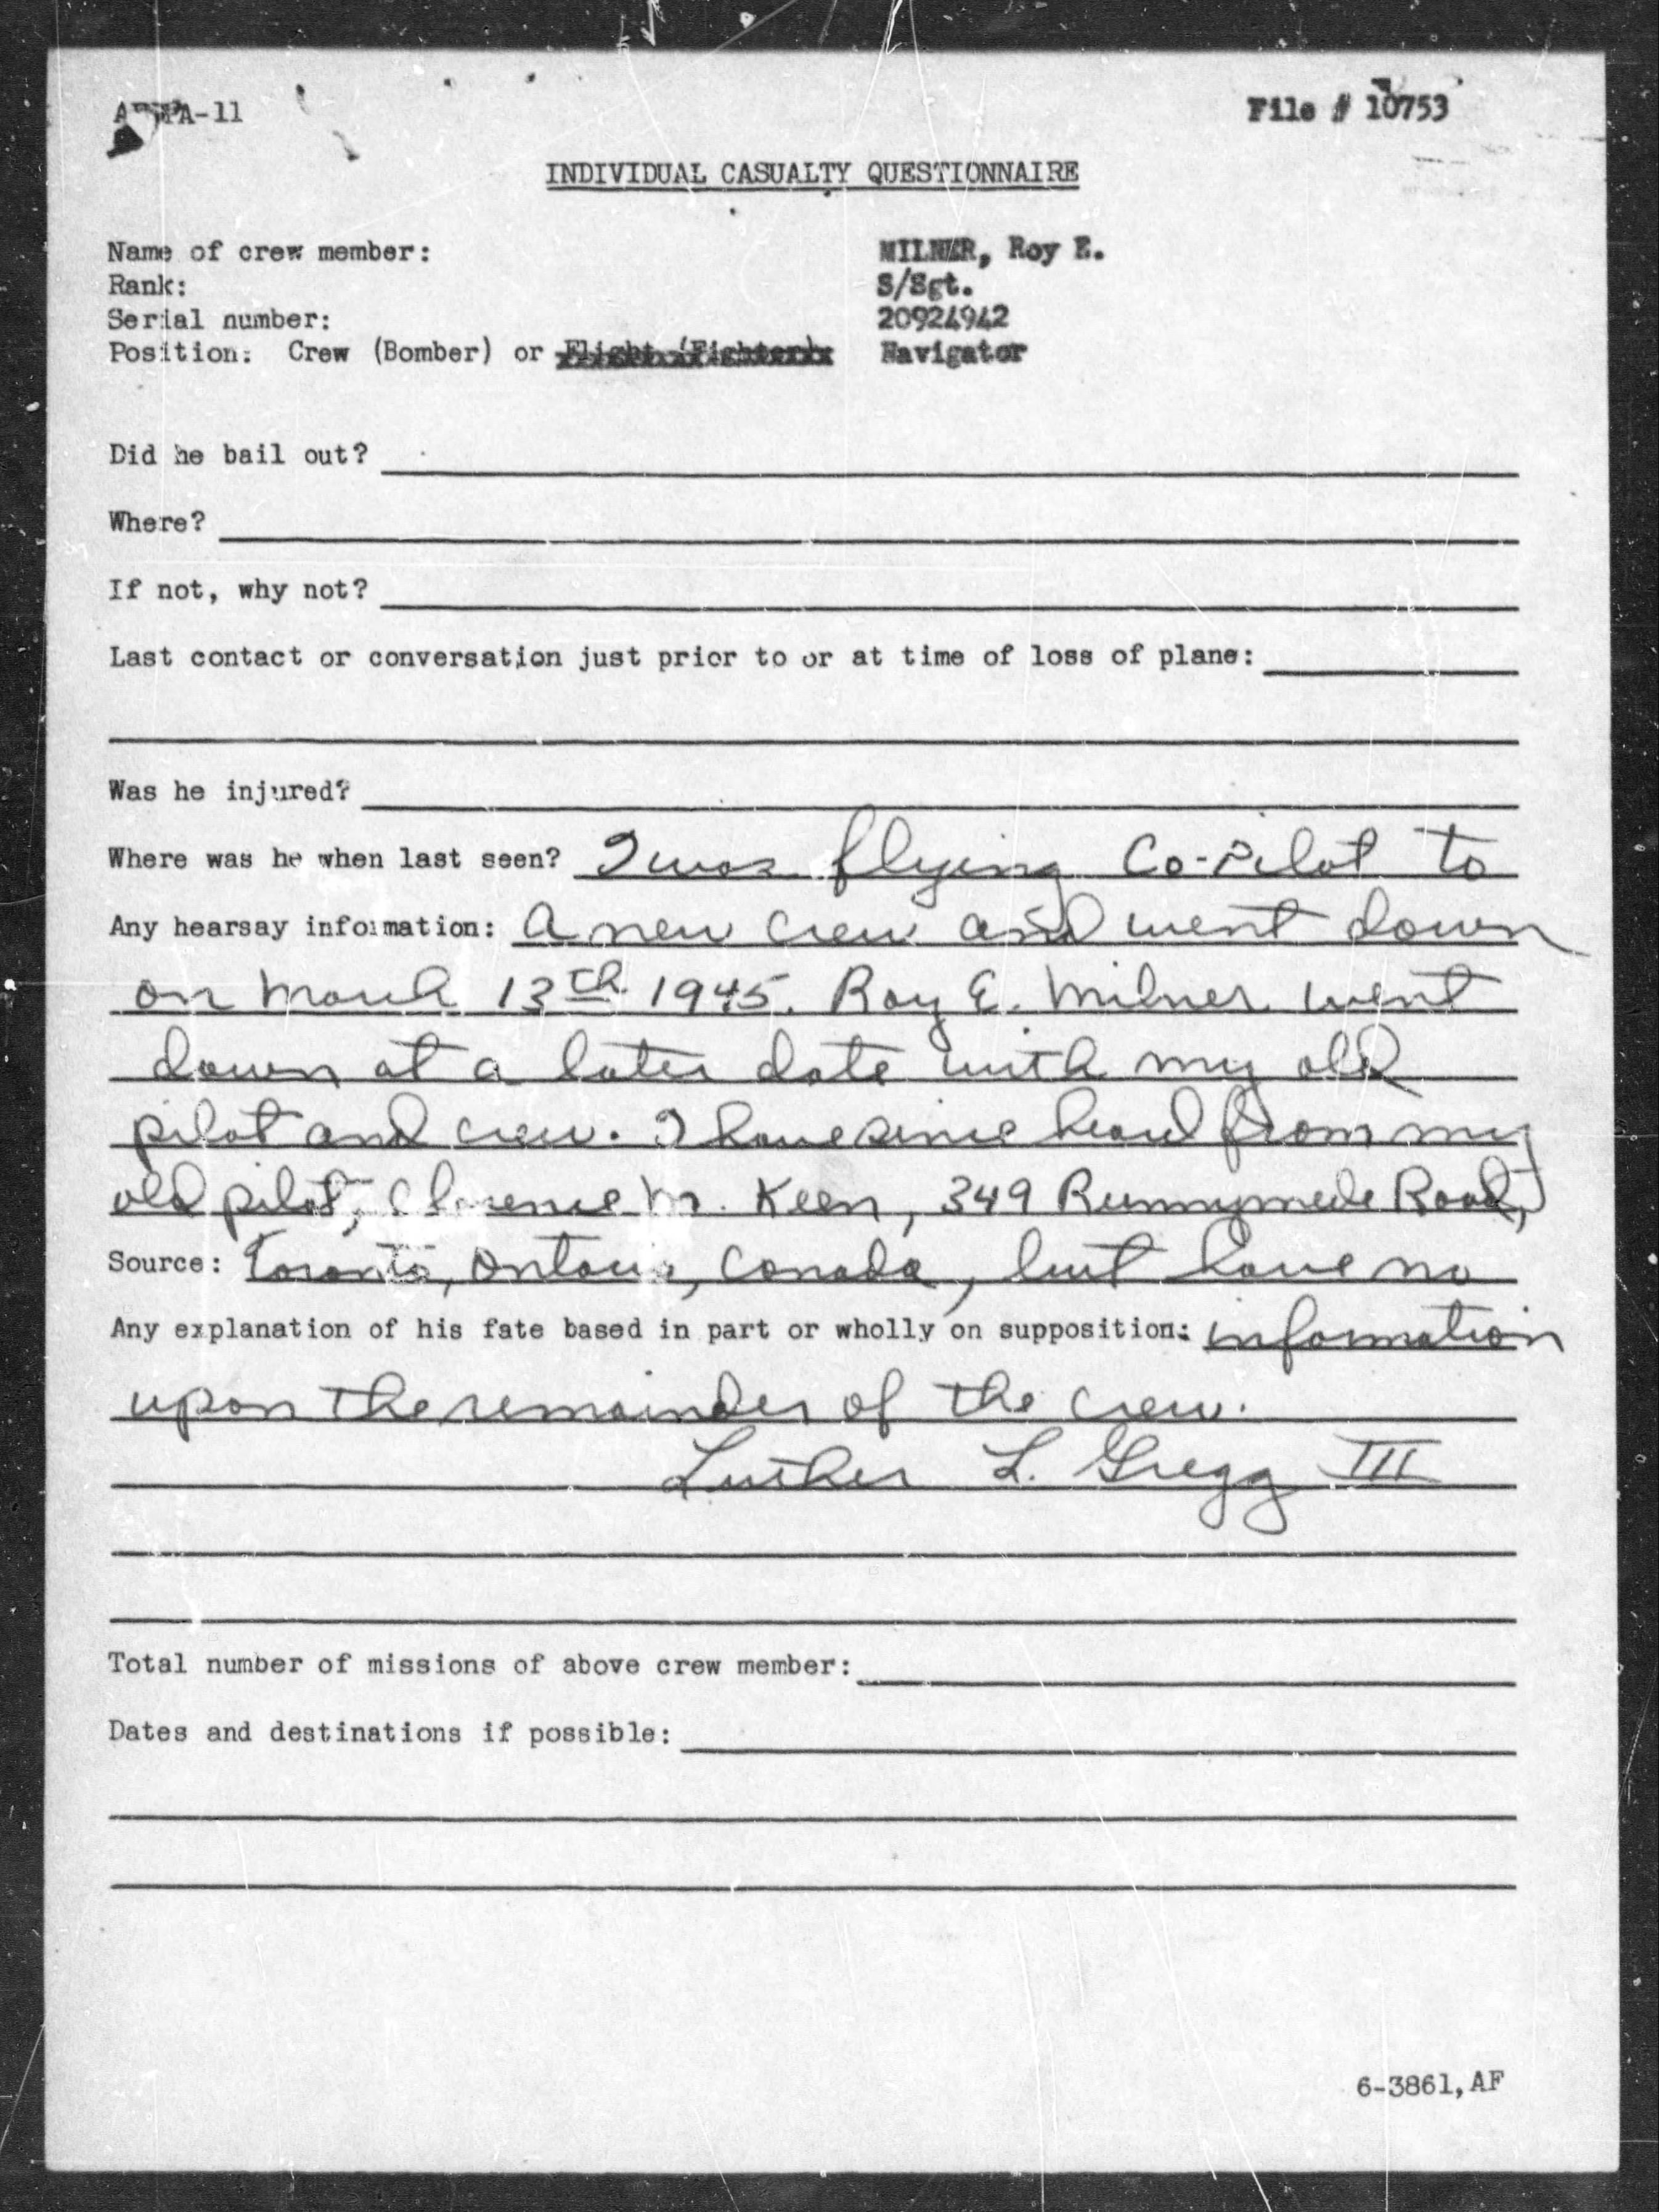 File # 10753
INDIVIDUAL CASUALTY QUESTIONNAIRE
Name of crew member: MILNER, Roy E.
Rank: S/Sgt.
Serial number: 20924942
Position: Crew (Bomber) or Flight (Fighter): Navigator
Did he bail out?
Where?
If not, why not?
Last contact or conversation just prior to or at time of loss of plane:
Was he injured?
Where was he when last seen? I was flying Co-Pilot to
Any hearsay information: a new crew and went down
on March 13th 1945. Roy E. Milner went
down at a later date with my old
pilot and crew. I have since heard from my
old pilot, Clarence M. Keen, 349 Runnymede Road,
Source: Toronto, Ontario, Canada, but have no
Any explanation of his fate based in part or wholly on supposition: information
upon the remainder of the crew.
Luther L. Gregg III
Total number of missions of above crew member:
Dates and destinations if possible:
6-3861, AF